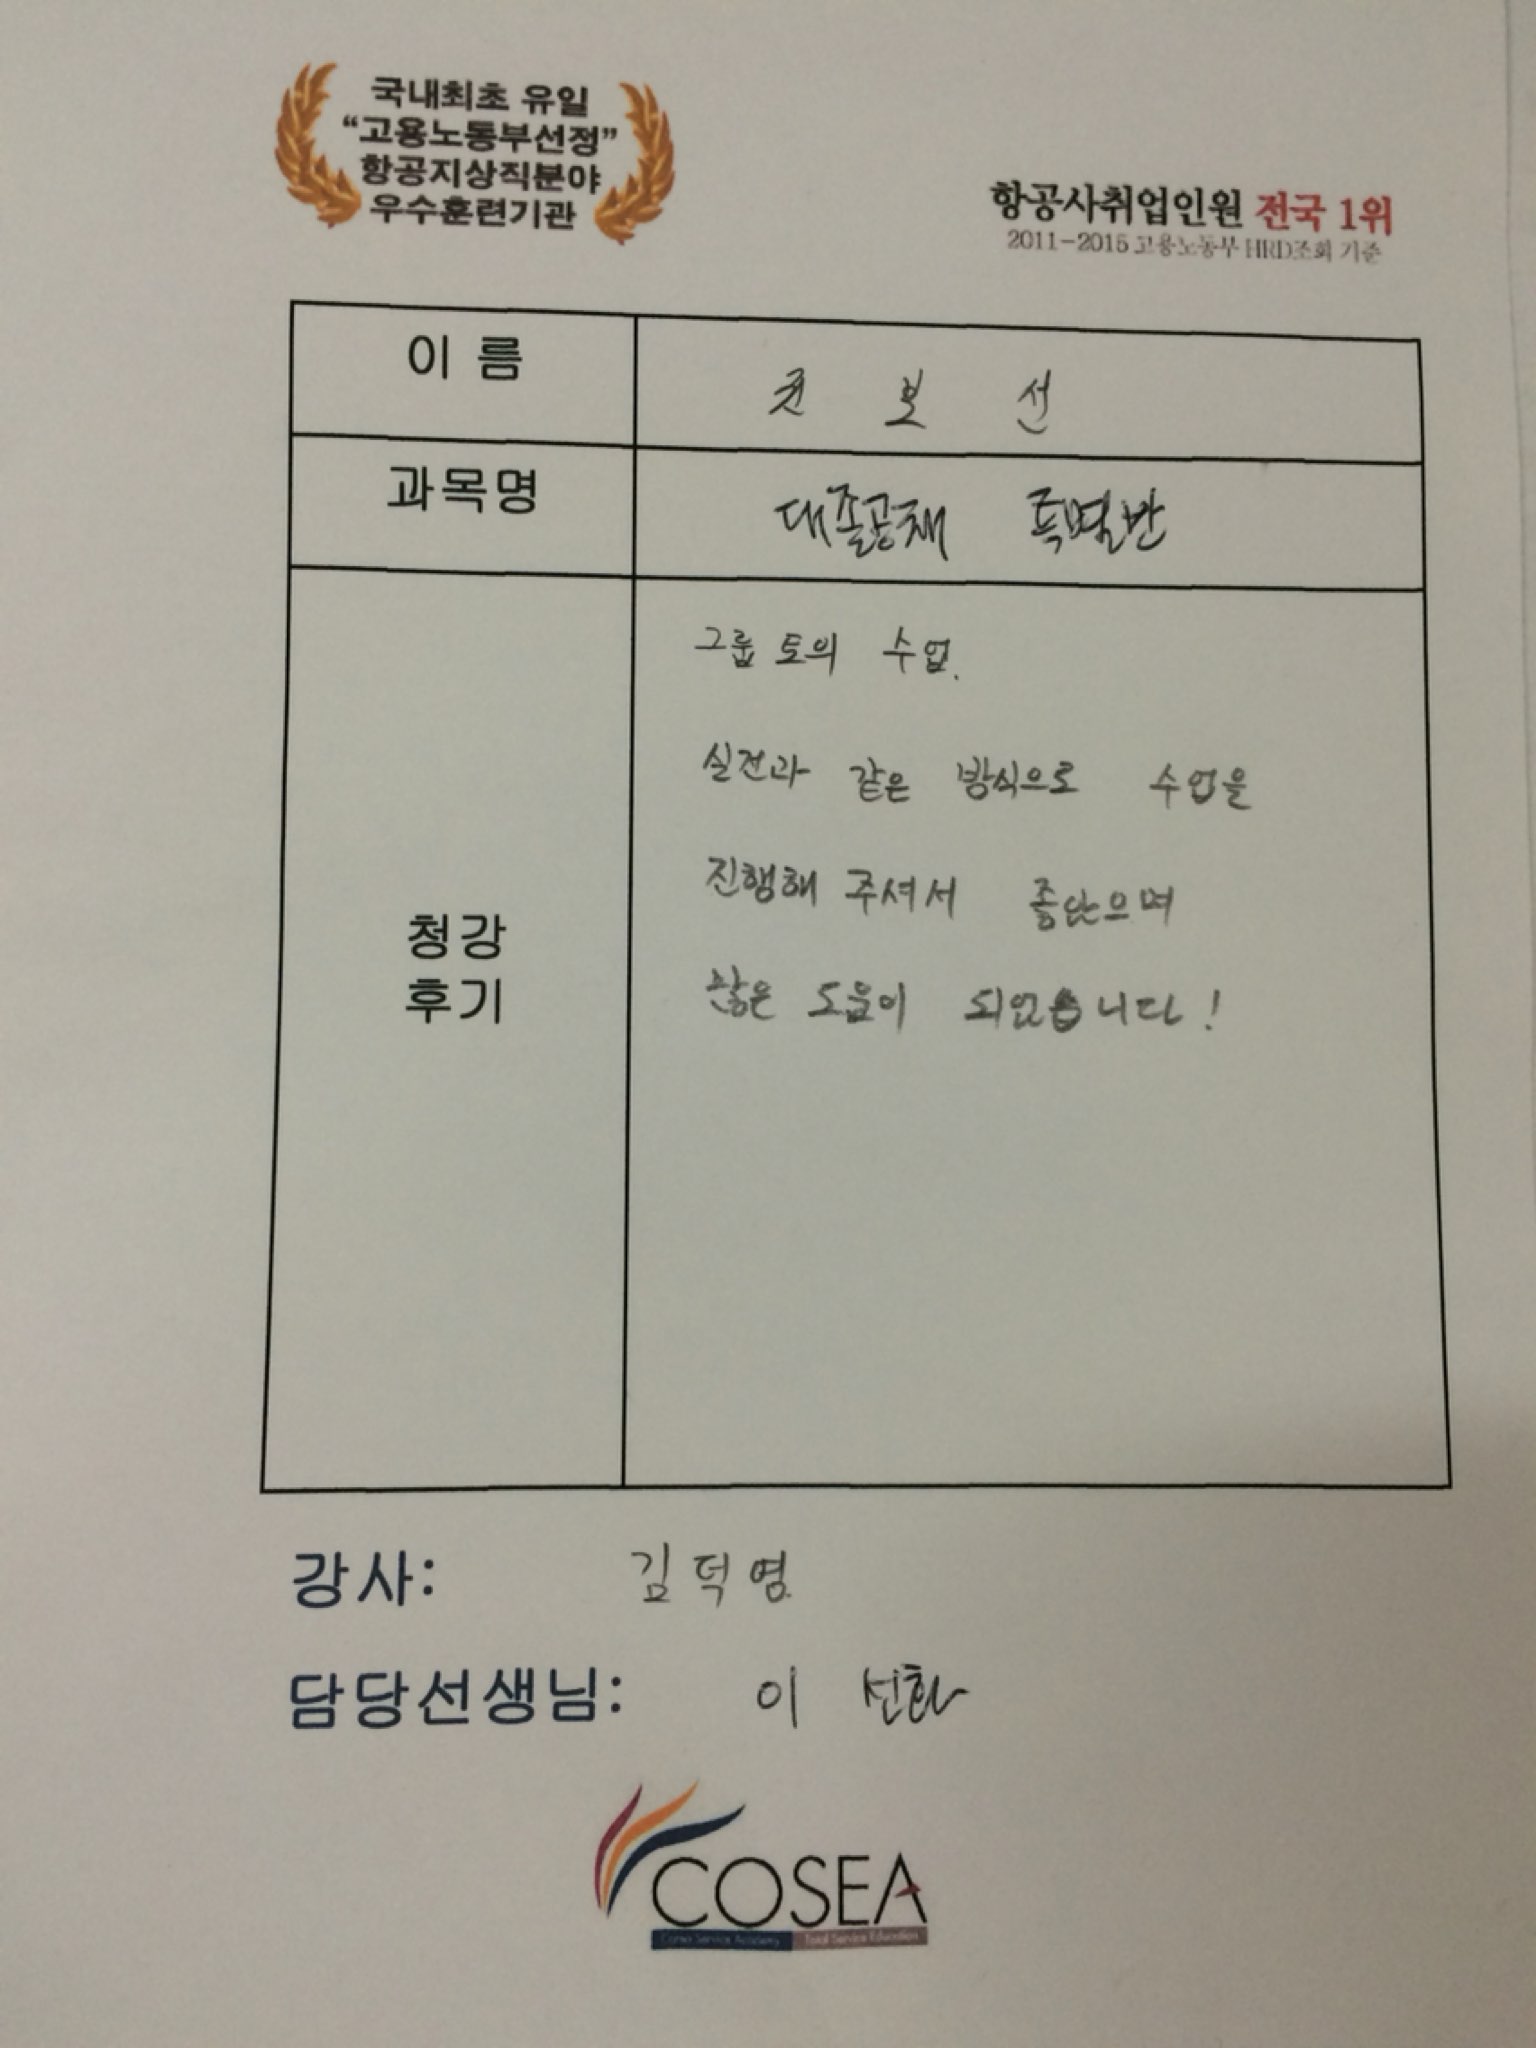 국내최초 유일
“고용노동부선정”
항공지상직분야
우수훈련기관
항공사취업인원 전국 1위
2011-2015 고용노동부 HRD조회 기준
이 름
권 보 선
과목명
대졸공채 특별반
그룹 토의 수업.
실전과 같은 방식으로 수업을
진행해 주셔서 좋았으며
많은 도움이 되었습니다!
청강
후기
강사: 김덕영
담당선생님: 이 선화
COSEA
Cosea Service Academy Total Service Education